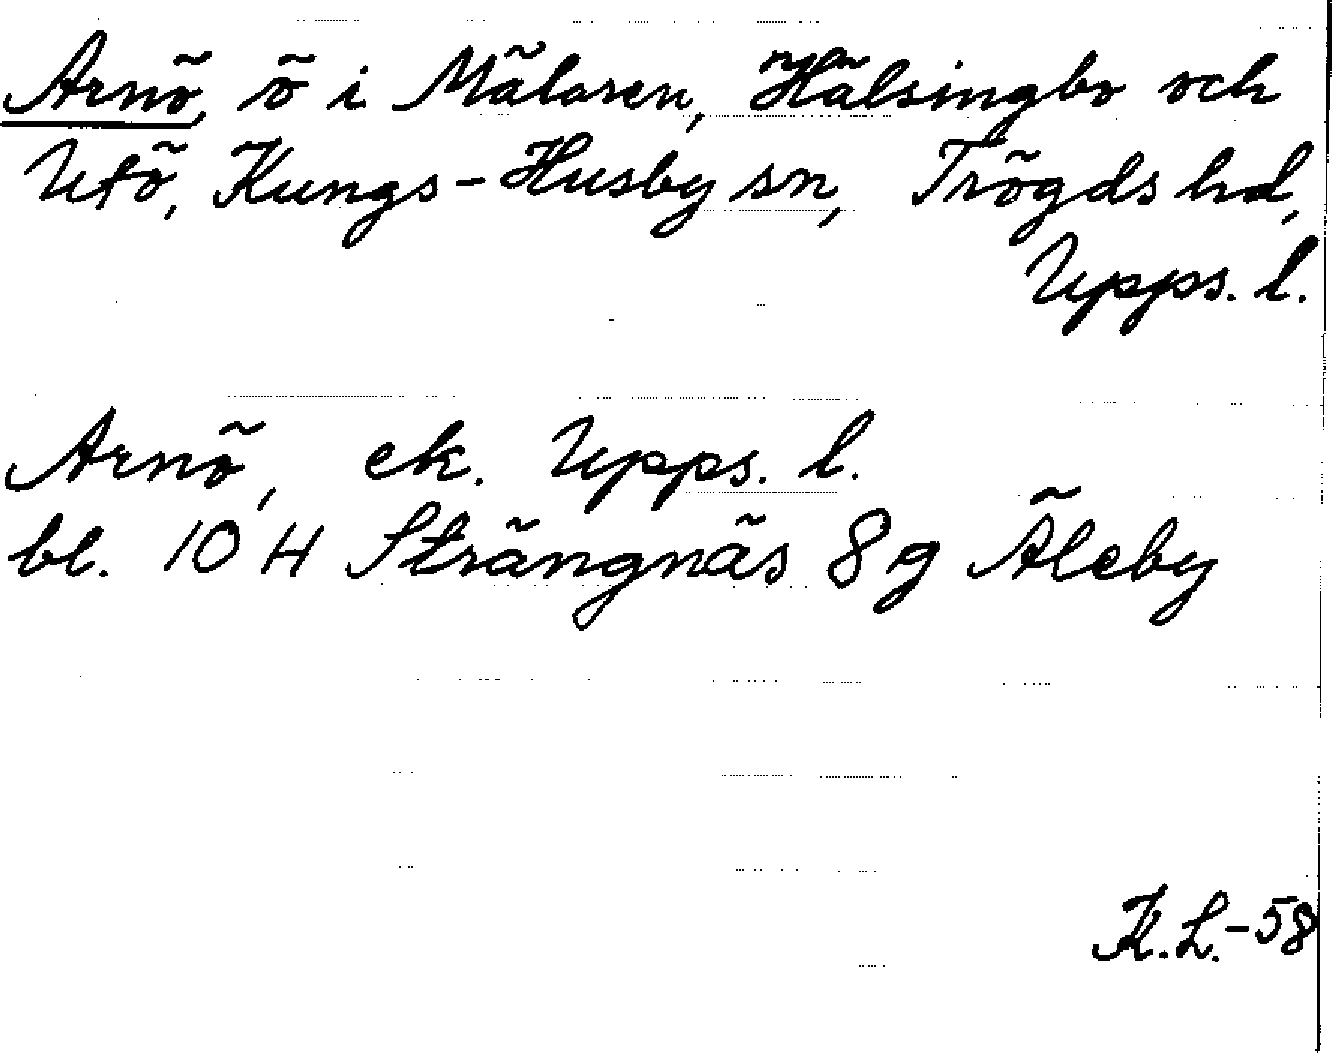 Arnö, ö i Mälaren, Hälsingbo och
Utö, Kungs-Husby sn, Trögds hd,
Upps. l.
Arnö, ek. Upps. l.
bl. 10 H Strängnäs 8 g Äleby
K.L.-58